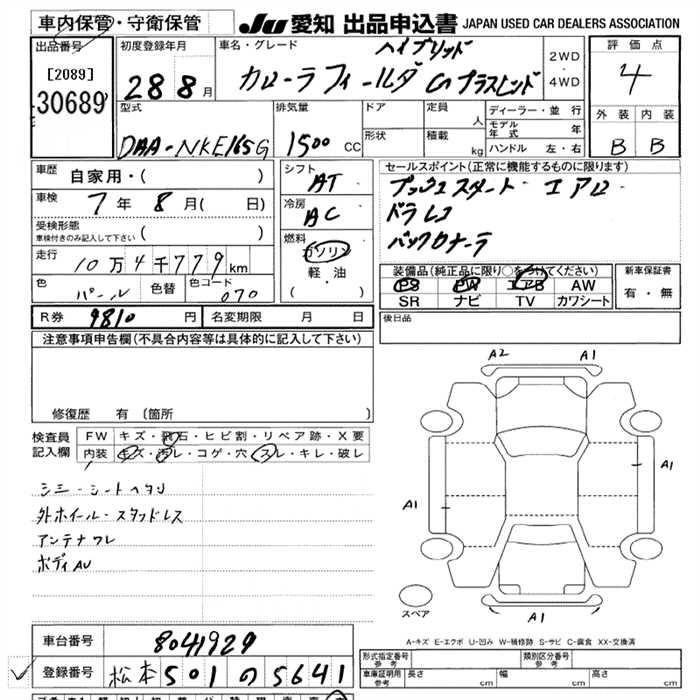 車内保管・守衛保管
JU 愛知 出品申込書 JAPAN USED CAR DEALERS ASSOCIATION
出品番号
[2089]
30689
初度登録年月
28 8月
車名・グレード
ハイブリッド
カローラフィールダ
2WD
・
4WD
評価点
4
外装 内装
B B
型式
DAA-NKE165G
排気量
1500 CC
ドア
形状
定員 人
積載 kg
ディーラー・並行
モデル年式 年
ハンドル 左・右
車歴
自家用・( )
車検
7年 8月( 日)
受検形態
車検付きのみ記入して下さい ( )
走行
10万4千779km
色
パール
色替
色コード
070
シフト
AT
冷房
AC
燃料
ガソリン
軽・油
( ・ )
セールスポイント(正常に機能するものに限ります)
プッシュスタート・エアロ・
ドラレコ
バックロナーラ
装備品(純正品に限り○をつけてください)
PS PW エアB AW
SR ナビ TV カワシート
新車保証書
有・無
R券 9810円 名変期限 月 日
後日品
注意事項申告欄(不具合内容等は具体的に記入して下さい)
修復歴 有 [箇所 ]
検査員
記入欄
FW キズ・飛石・ヒビ割・リペア跡・X要
内装 キズ・汚レ・コゲ・穴・スレ・キレ・破レ
シミー・シートヘタリ
外ホイール・スタッドレス
アンテナワレ
ボディAU
A2 A1
A1
A1
A1
スペア
A-キズ E-エクボ U-凹み W-補修跡 S-サビ C-腐食 XX-交換済
車台番号
8041929
登録番号
松本501の5641
形式指定番号
参考
類別区分番号
参考
車庫証明用
参考
長さ cm 幅 cm 高さ cm